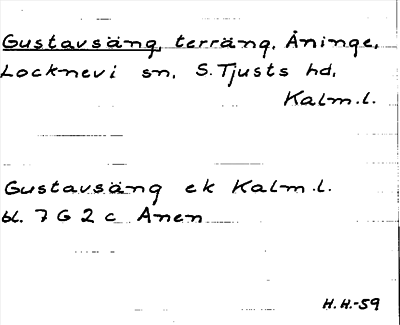 Gustavsäng, terräng, Åninge,
Locknevi sn, S. Tjusts hd,
Kalm.l.
Gustavsäng ek Kalm.l.
bl. 7 G 2 c Anen
H.H.-59